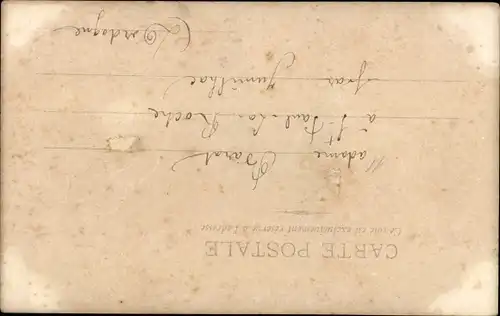 CARTE POSTALE
Ce côté est exclusivement réservé à l'adresse
Madame Barot
à St Paul-La-Roche
par Jumilhac
(Dordogne)